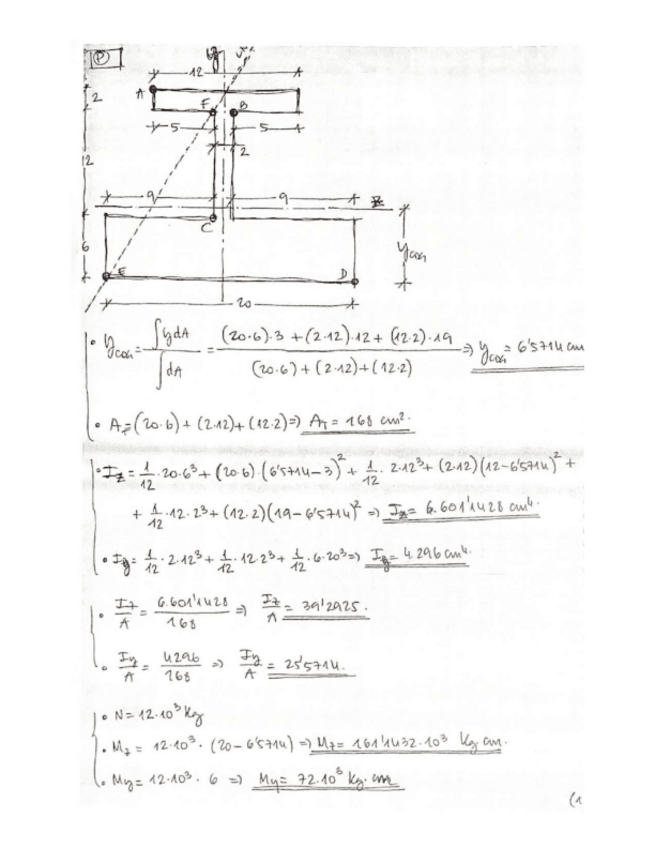 P
y
12
A
2
F
B
5
5
2
12
9
9
z
C
6
y_CDG
E
D
20
• y_CDG = ∫ydA / ∫dA = ((20·6)·3 + (2·12)·12 + (12·2)·19) / ((20·6) + (2·12) + (12·2)) ⇒ y_CDG = 6'5714 cm
• A_T = (20·6) + (2·12) + (12·2) ⇒ A_T = 168 cm².
• I_z = 1/12 · 20·6³ + (20·6)·(6'5714-3)² + 1/12 · 2·12³ + (2·12)(12-6'5714)² +
+ 1/12 · 12·2³ + (12·2)(19-6'5714)² ⇒ I_z = 6.601'1428 cm⁴.
• I_y = 1/12 · 2·12³ + 1/12 · 12·2³ + 1/12 · 6·20³ ⇒ I_y = 4.296 cm⁴.
• I_z/A = 6.601'1428/168 ⇒ I_z/A = 39'2925.
• I_y/A = 4296/168 ⇒ I_y/A = 25'5714.
• N = 12·10³ kg
• M_z = 12·10³ · (20-6'5714) ⇒ M_z = 161'1432·10³ kg cm.
• My = 12·10³ · 6 ⇒ My = 72·10³ kg·cm.
(1